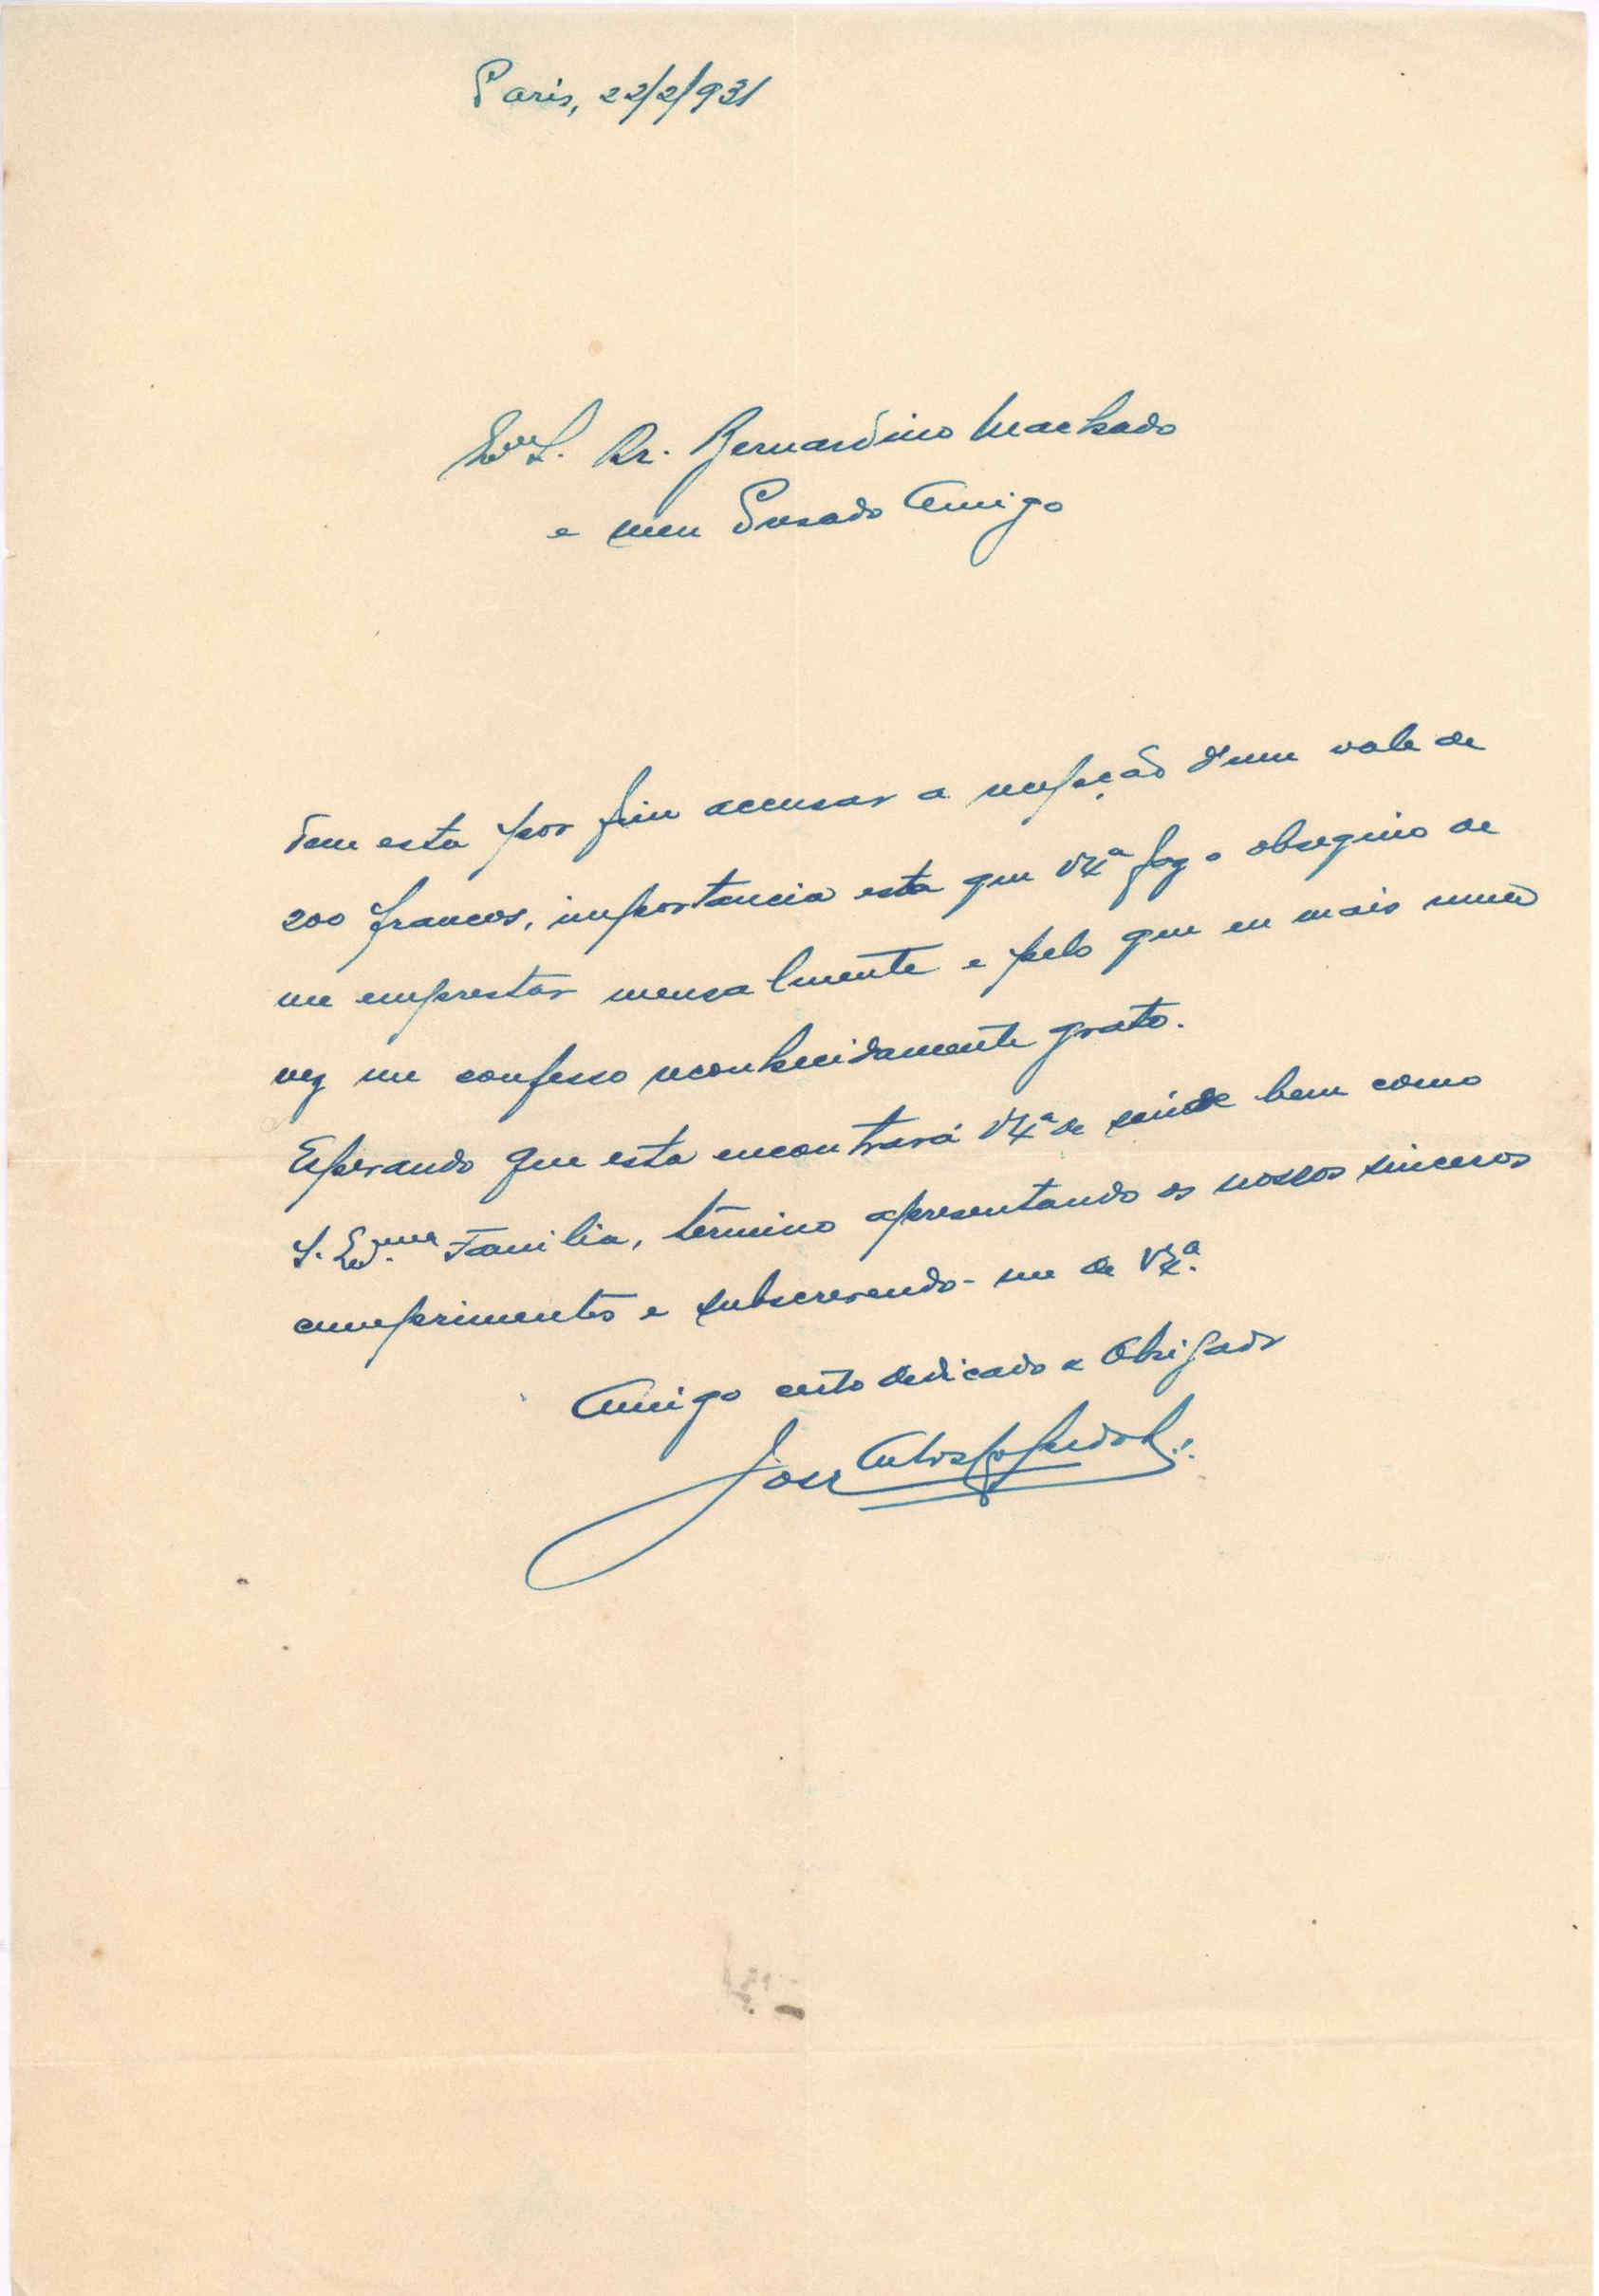 Paris, 22/2/931
Exmo Sr. Dr. Bernardino Machado
e meu Presado Amigo
Tem esta por fim accusar a recepção d'um vale de
200 francos, importancia esta que V Exª faz o obsequio de
me emprestar mensalmente e pelo que eu mais uma
vez me confesso reconhecidamente grato.
Esperando que esta encontrará V Exª de saúde bem como
S. Exma Familia, término apresentando os nossos sinceros
cumprimentos e subscrevendo-me de V Exª.
Amigo certo dedicado e Obrigado
José